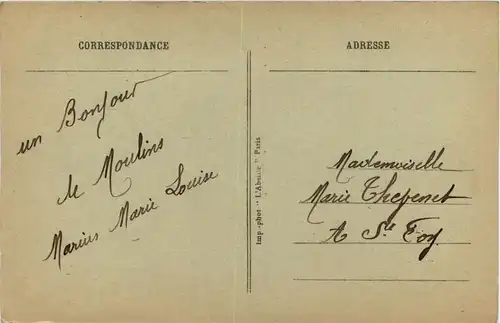 CORRESPONDANCE
un Bonjour
de Moulins
Marius Marie Louise
Imp.-phot "L'Abeille" Paris
ADRESSE
Mademoiselle
Marie Thepenet
A Ste Foy